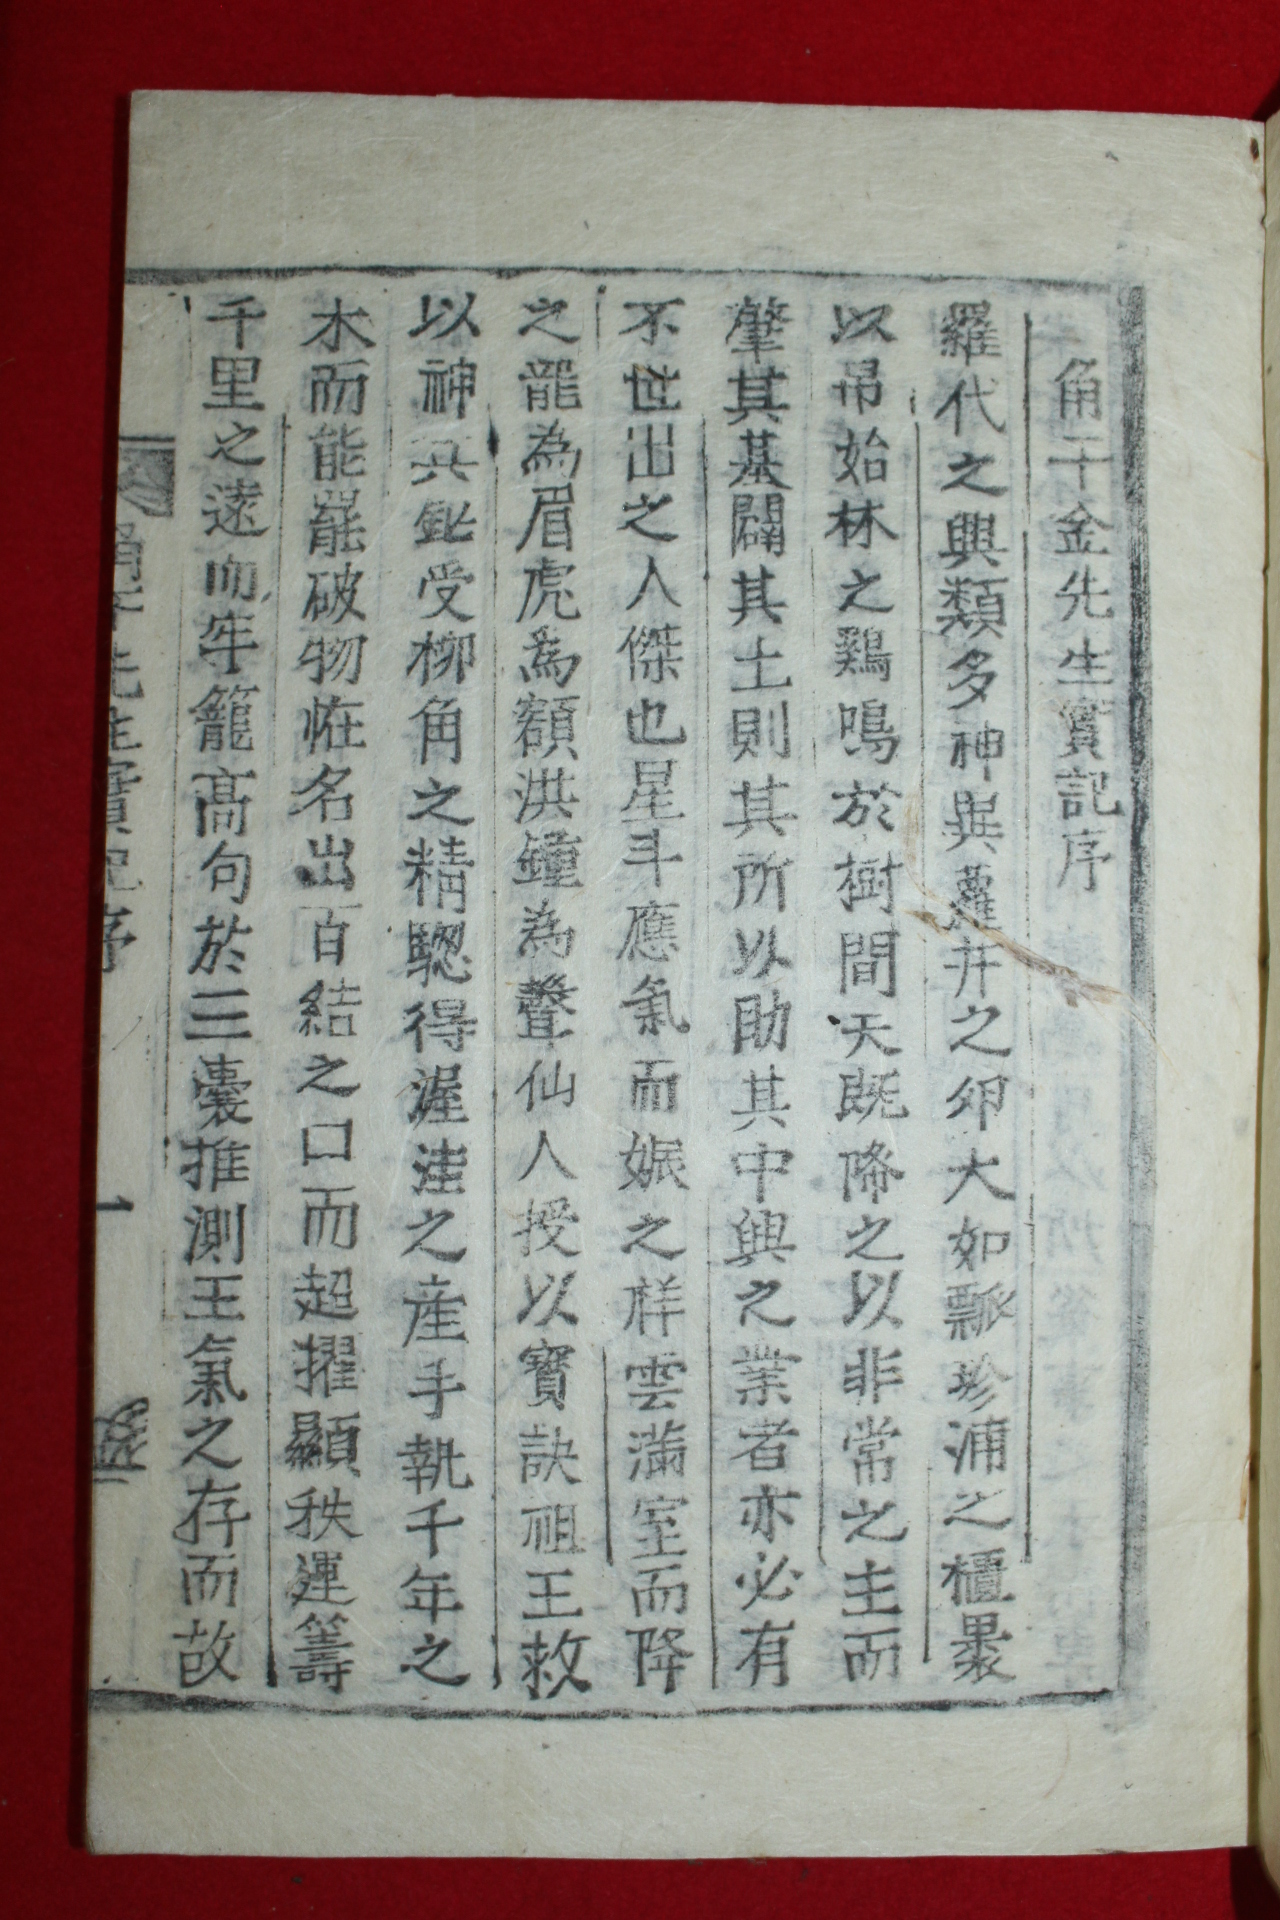 角干金先生實記序
羅代之興類多神異蘿井之卵大如瓢珍浦之櫃褁
以帛始林之鷄鳴於樹間天既降之以非常之主而
肇其基闢其土則其所以助其中興之業者亦必有
不世出之人傑也星斗應氣而娠之祥雲滿室而降
之龍為眉虎為額洪鐘為聲仙人授以寶訣祖王救
以神兵毓受柳角之精驄得渥洼之產手執千年之
木而能罷破物恠名出百結之口而超擢顯秩運籌
千里之遠而牢籠高句於三囊推測王氣之存而故
角干先生實記序
一